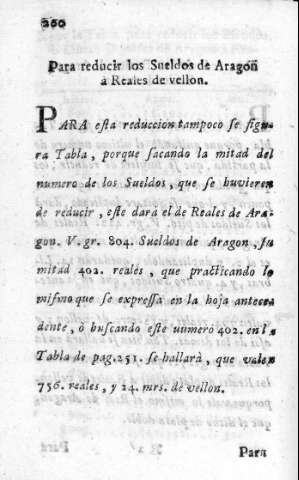 200
Para reducir los Sueldos de Aragon
à Reales de vellon.
PARA esta reduccion tampoco se figu-
ra Tabla, porque sacando la mitad del
numero de los Sueldos, que se huvieren
de reducir, este darà el de Reales de Ara-
gon. V. gr. 804. Sueldos de Aragon, su
mitad 402. reales, que practicando lo
mismo que se expressa en la hoja antece
dente, ò buscando este numero 402. en la
Tabla de pag. 251. se hallarà, que valen
756. reales, y 24. mrs. de vellon.
Para